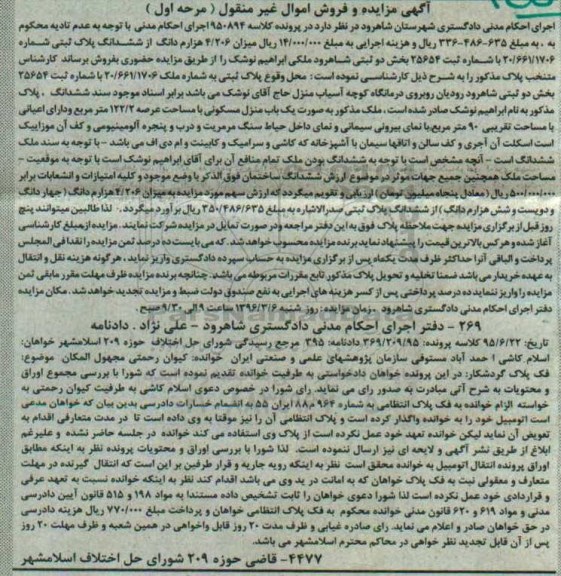 آگهی مزایده و فروش اموال غیر منقول ( مرحله اول )
اجرای احکام مدنی دادگستری شهرستان شاهرود در نظر دارد در پرونده کلاسه ۹۵۰۸۹۴ اجرای احکام مدنی با توجه به عدم تادیه محکوم
به ، به مبلغ ۳۳۶/۴۸۶/۶۳۵ ریال و هزینه اجرایی به مبلغ ۱۴/۰۰۰/۰۰۰ ریال میزان ۴/۲۰۶ هزارم دانگ از ششدانگ پلاک ثبتی شماره
۲۰/۶۶۱/۱۷۰۶ با شماره ثبت ۲۵۶۵۴ بخش دو ثبتی شاهرود ملکی ابراهیم نوشک را از طریق مزایده حضوری بفروش برساند کارشناس
منتخب پلاک مذکور را به شرح ذیل کارشناسی نموده است : محل وقوع پلاک ثبتی به شماره ملک ۲۰/۶۶۱/۱۷۰۶ با شماره ثبت ۲۵۶۵۴
بخش دو ثبتی شاهرود رودیان روبروی درمانگاه کوچه آسیاب منزل حاج آقای نوشک می باشد برابر اسناد موجود سند ششدانگ ، پلاک
مذکور به نام ابراهیم نوشک صادر شده است ، ملک مذکور به صورت یک باب منزل مسکونی با مساحت عرصه ۱۲۲/۲ متر مربع ودارای اعیانی
با مساحت تقریبی ۹۰ متر مربع،با نمای بیرونی سیمانی و نمای داخل حیاط سنگ مرمریت و درب و پنجره آلومینیومی و کف آن موزاییک
است اسکلت آن آجری و کف سالن و اتاقها سیمان با آشپزخانه که کاشی و سرامیک و کابینت و ام دی اف می باشد - با توجه به سند ملک
ششدانگ است - آنچه مشخص است با توجه به ششدانگ بودن ملک تمام منافع آن برای آقای ابراهیم نوشک است با توجه به موقعیت -
مساحت ملک همچنین جمیع جهات موثر در موضوع ارزش ششدانگ ساختمان فوق الذکر با وضع موجود و کلیه امتیازات و انشعابات برابر
۵۰۰/۰۰۰/۰۰۰ ریال ( معادل پنجاه میلیون تومان ) ارزیابی و تقویم میگردد که ارزش سهم مورد مزایده به میزان ۴/۲۰۶ هزارم دانگ ( چهار دانگ
و دویست و شش هزارم دانگ ) از ششدانگ پلاک ثبتی صدرالاشاره به مبلغ ۳۵۰/۴۸۶/۶۳۵ ریال بر آورد میگردد . لذا طالبین میتوانند پنچ
روز قبل از برگزاری مزایده جهت ملاحظه پلاک فوق به این دفتر مراجعه و در صورت تمایل در مزایده شرکت نمایند . مزایده از مبلغ کارشناسی
آغاز شده و هر کس بالاترین قیمت را پیشنهاد نماید برنده مزایده محسوب خواهد شد . که می بایست ده درصد ثمن مزایده را نقدا فی المجلس
پرداخت و الباقی آنرا حداکثر ظرف مدت یکماه پس از برگزاری مزایده به حساب سپرده دادگستری واریز نماید ، هر گونه هزینه نقل و انتقال
به عهده خریدار می باشد ضمنا تخلیه و تحویل پلاک مذکور تابع مقررات مربوطه می باشد . چنانچه برنده مزایده ظرف مهلت مقرر مابقی ثمن
مزایده را واریز ننماید ده درصد پرداختی پس از کسر هزینه های اجرایی به نفع صندوق دولت ضبط و مزایده تجدید خواهد شد . مکان مزایده
دفتر اجرای احکام مدنی دادگستری شاهرود زمان مزایده : روز شنبه ۱۳۹۶/۳/۶ ساعت ۹ الی ۹/۳۰ صبح.
۲۶۹ - دفتر اجرای احکام مدنی دادگستری شاهرود - علی نژاد . دادنامه
تاریخ: ۹۵/۶/۲۲ کلاسه پرونده: ۳۶۹/۲۰۹/۹۵ دادنامه: ۳۹۵ مرجع رسیدگی شورای حل اختلاف حوزه ۲۰۹ اسلامشهر خواهان:
اسلام کاشی ا حمد آباد مستوفی سازمان پژوهشهای علمی و صنعتی ایران خوانده: کیوان رحمتی مجهول المکان. موضوع:
فک پلاک گردشکار: در این پرونده خواهان دادخواستی به طرفیت خوانده تقدیم نموده است که شورا با بررسی مجموع اوراق
و محتویات به شرح آتی مبادرت به صدور رای می نماید. رای شورا در خصوص دعوی اسلام کاشی به طرفیت کیوان رحمتی به
خواسته الزام خوانده به فک پلاک انتظامی به شماره ۹۶۴ م۸۸ ایران ۵۵ به انضمام خسارات دادرسی بدین بیان که خواهان مدعی
است اتومبیل خود را به خوانده واگذار کرده است و پلاک انتظامی آن را نیز موقتا به وی داده است تا در مدت متعارفی اقدام به
تعویض آن نماید لیکن خوانده تعهد خود عمل نکرده است از پلاک وی استفاده می کند خوانده در جلسه حاضر نشده و علیرغم
ابلاغ از طریق نشر آگهی و لایحه ای نیز ارسال ننموده است. لذا شورا با بررسی اوراق و محتویات پرونده نظر به اینکه مطابق
اوراق پرونده انتقال اتومبیل به خوانده محقق است نظر به اینکه رویه جاریه و قرار طرفین بر این است که انتقال گیرنده در مهلت
متعارف و معقولی نبت به فک پلاک خواهان که به امانت در ید وی می باشد اقدام کند نظر به اینکه خوانده نسبت به تعهد عرفی
و قراردادی خود عمل نکرده است لذا شورا دعوی خواهان را ثابت تشخیص داده مستندا به مواد ۱۹۸ و ۵۱۵ قانون آیین دادرسی
مدنی و مواد ۶۱۹ و ۶۲۰ قانون مدنی خوانده محکوم به فک پلاک انتظامی خواهان و پرداخت مبلغ ۷۷۰/۰۰۰ ریال هزینه دادرسی
در حق خواهان صادر و اعلام می نماید. رای صادره غیابی و ظرف مدت ۲۰ روز قابل واخواهی در همین شعبه و ظرف مهلت ۲۰ روز
پس از آن قابل تجدید نظر خواهی در محاکم محترم اسلامشهر می باشد.
۴۴۷۷- قاضی حوزه ۲۰۹ شورای حل اختلاف اسلامشهر